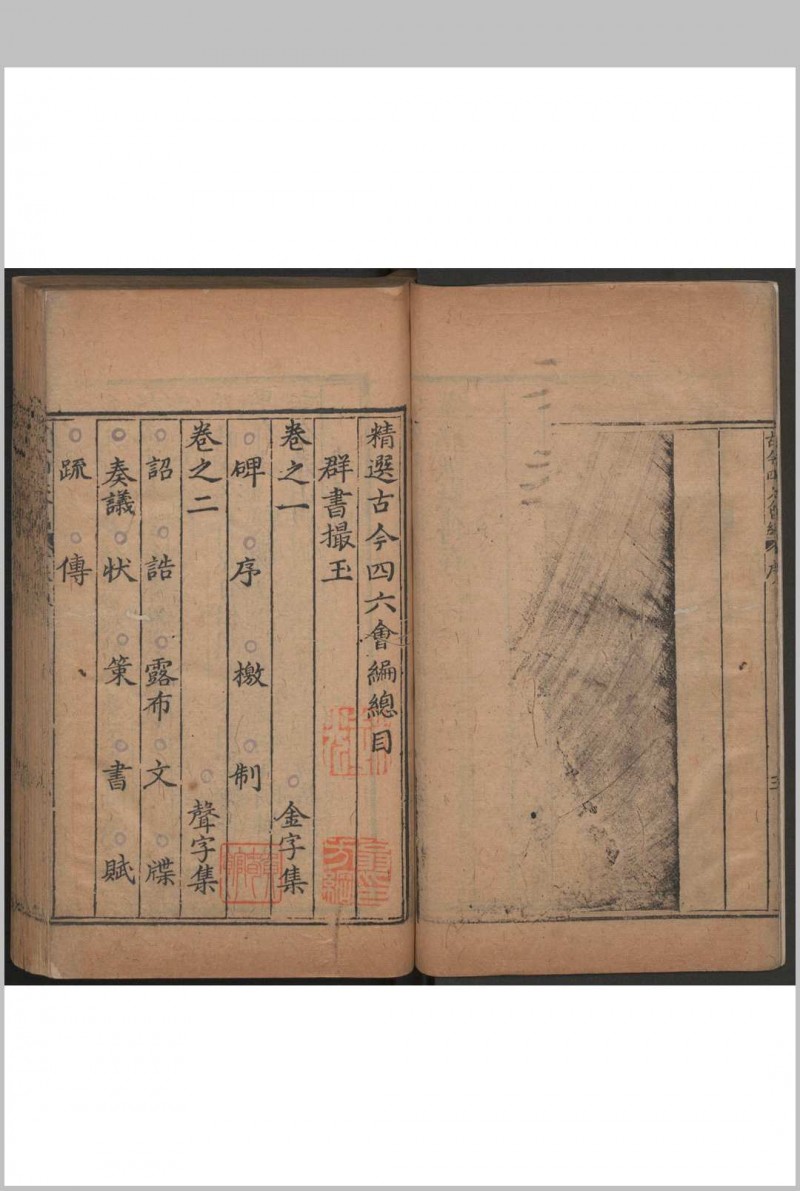 精選古今四六會編總目
群書撮玉
卷之一 金字集
碑 序 檄 制
卷之二 聲字集
詔 誥 露布 文 牒
奏議 狀 策 書 賦
疏 傳
序
三